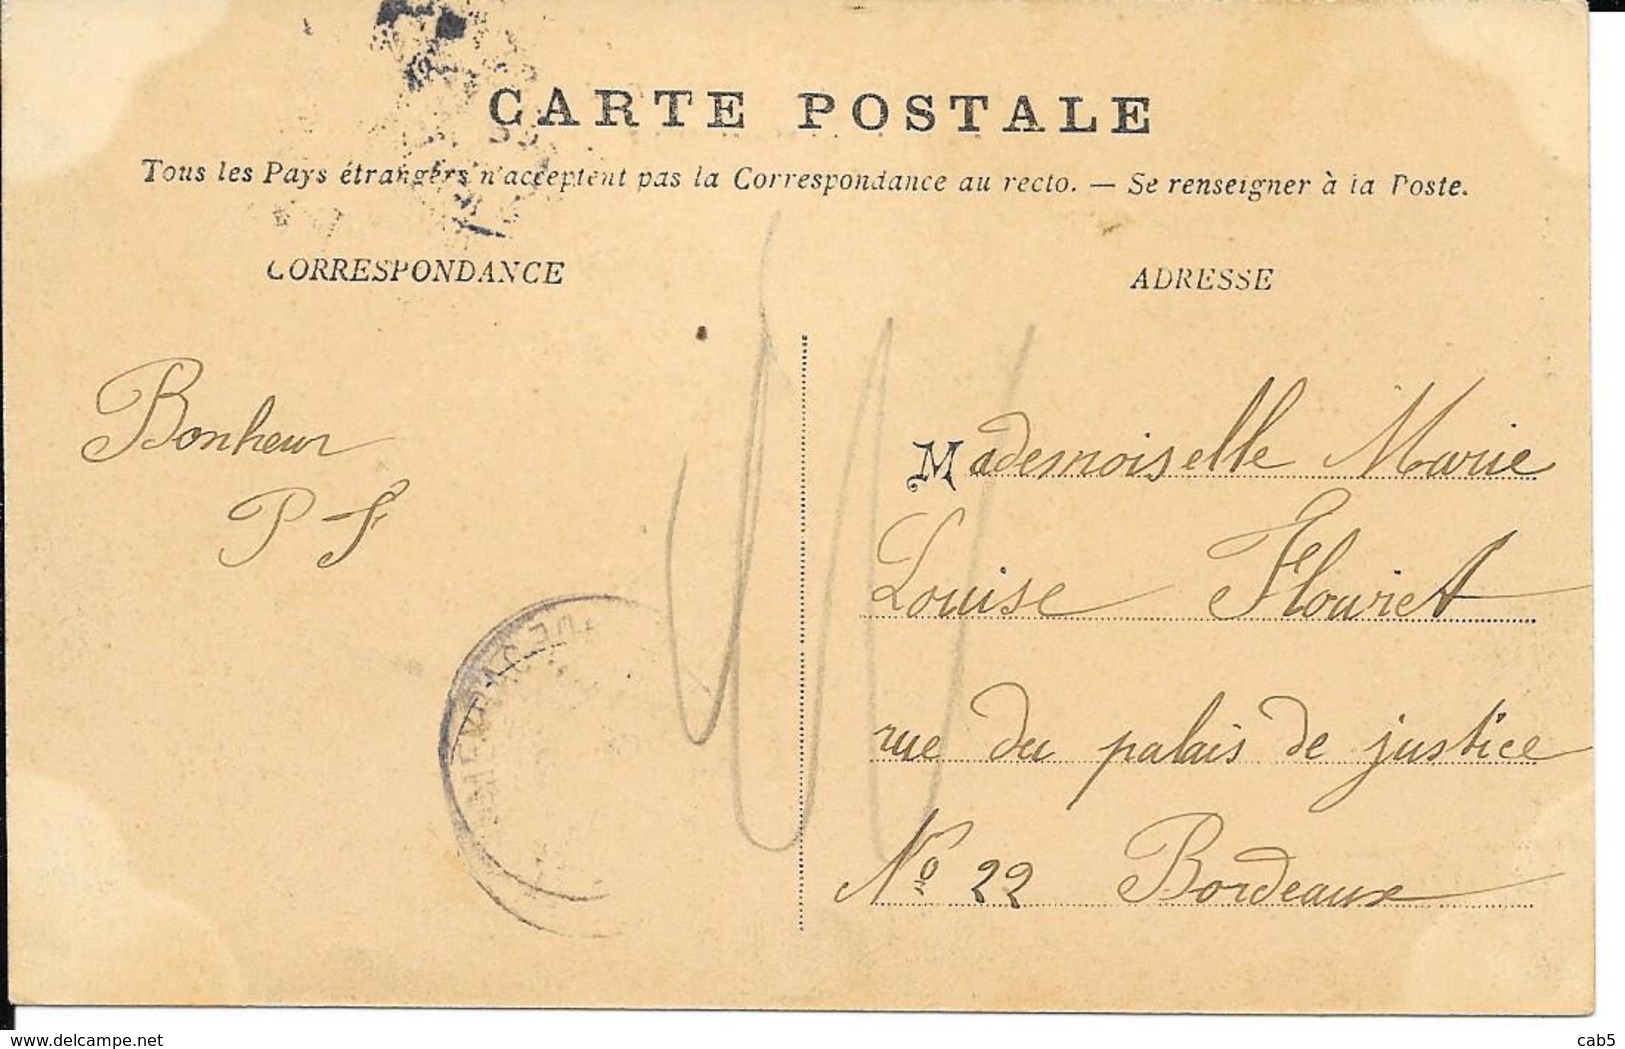 CARTE POSTALE
Tous les Pays étrangers n'acceptent pas la Correspondance au recto. — Se renseigner à la Poste.
CORRESPONDANCE
ADRESSE
Bonheur
P F
Mademoiselle Marie
Louise Flouret
rue du palais de justice
No 22 Bordeaux
www.delcampe.net
cab5